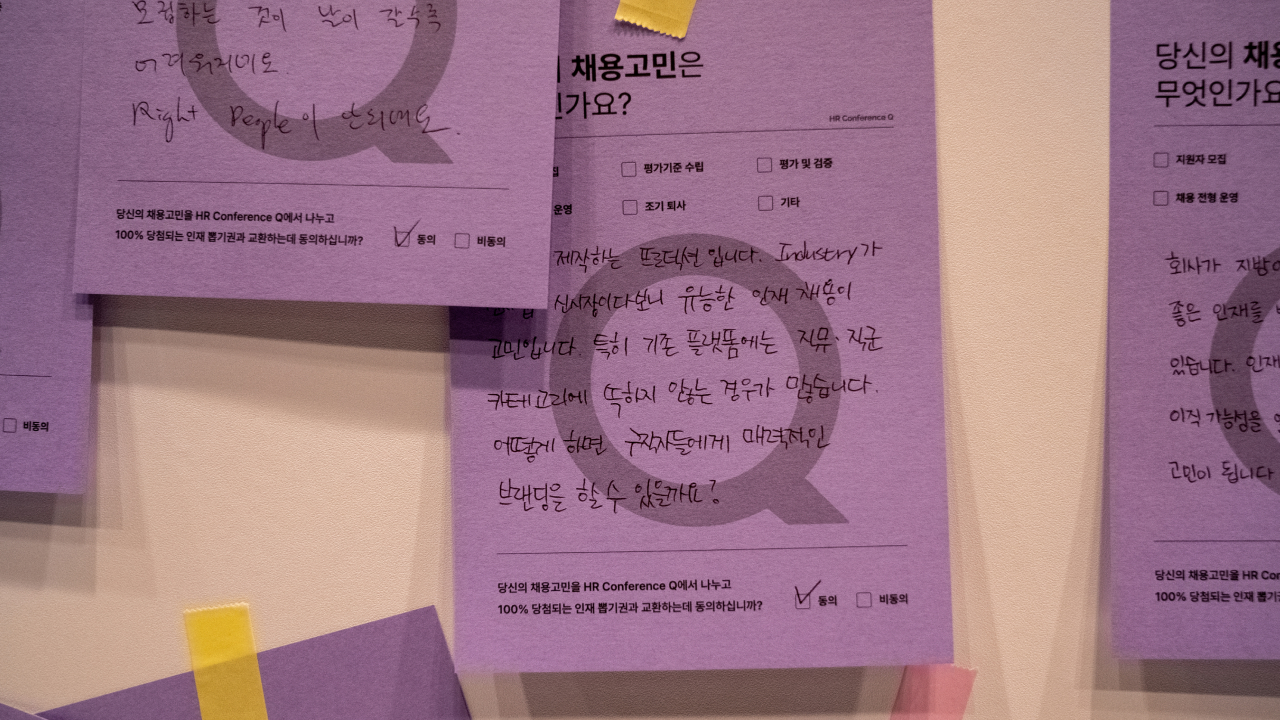 모집하는 것이 날이 갈수록
어려워지네요.
Right People이 안되네요.
당신의 채용고민을 HR Conference Q에서 나누고
100% 당첨되는 인재 뽑기권과 교환하는데 동의하십니까?
동의
비동의
비동의
채용고민은
인가요?
HR Conference Q
평가기준 수립
평가 및 검증
운영
조기 퇴사
기타
제작하는 프로덕션 입니다. Industry가
신시장이다보니 유능한 인재 채용이
고민입니다. 특히 기존 플랫폼에는 직무·직군
카테고리에 뚝하지 않는 경우가 많습니다.
어떻게 하면 구직자들에게 매력적인
브랜딩을 할 수 있을까요?
당신의 채용고민을 HR Conference Q에서 나누고
100% 당첨되는 인재 뽑기권과 교환하는데 동의하십니까?
동의
비동의
당신의 채용
무엇인가요
지원자 모집
채용 전형 운영
회사가 지방
좋은 인재를
있습니다. 인재
이직 가능성을
고민이 됩니다
당신의 채용고민을 HR Con
100% 당첨되는 인재 뽑기